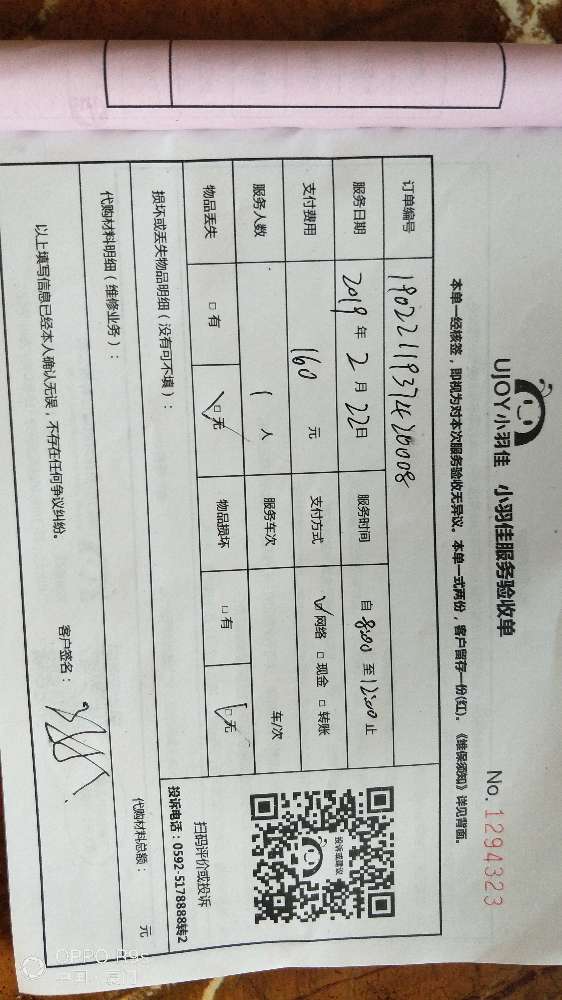 UJOY小羽佳 小羽佳服务验收单
No. 1294323
本单一经核签，即视为对本次服务验收无异议。本单一式两份，客户留存一份(红)。《维保须知》详见背面。
订单编号 19022119371420008
服务日期 2019 年 2 月 22 日 服务时间 自 8:00 至 12:00 止
支付费用 160 元 支付方式 ☑网络 □现金 □转账
服务人数 1 人 服务车次 车/次
物品丢失 □有 ☑无 物品损坏 □有 ☑无
损坏或丢失物品明细（没有可不填）：
投诉或建议
扫码评价或投诉
投诉电话：0592-5178888转2
代购材料明细（维修业务）：
代购材料总额： 元
以上填写信息已经本人确认无误，不存在任何争议纠纷。
客户签名：
OPPO R9s